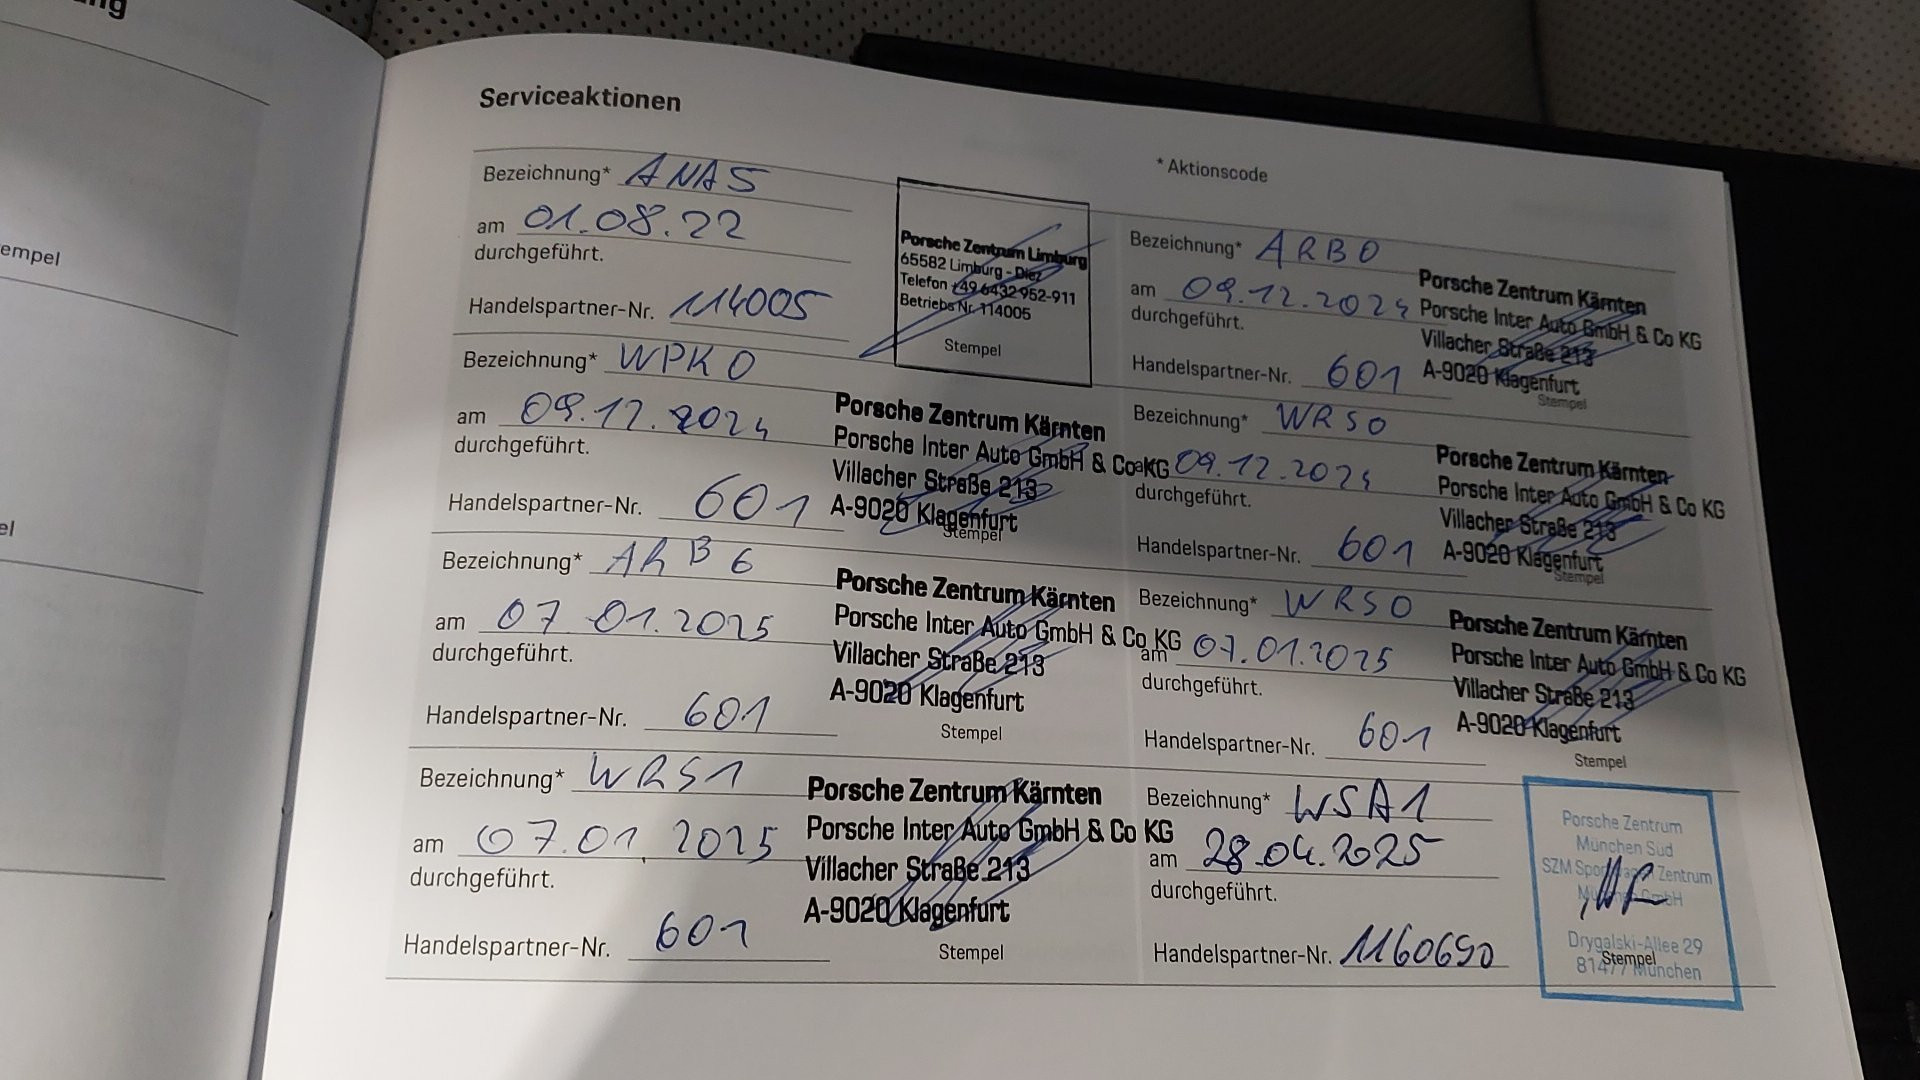 ng
empel
el
Serviceaktionen
* Aktionscode
Bezeichnung* ANA5
am 01.08.22
durchgeführt.
Handelspartner-Nr. 114005
Porsche Zentrum Limburg
65582 Limburg - Diez
Telefon +49 6432 952-911
Betriebs Nr. 114005
Stempel
Bezeichnung* ARB0
am 09.12.2024
durchgeführt.
Handelspartner-Nr. 601
Porsche Zentrum Kärnten
Porsche Inter Auto GmbH & Co KG
Villacher Straße 213
A-9020 Klagenfurt
Stempel
Bezeichnung* WPK0
am 09.12.2024
durchgeführt.
Handelspartner-Nr. 601
Porsche Zentrum Kärnten
Porsche Inter Auto GmbH & Co KG
Villacher Straße 213
A-9020 Klagenfurt
Stempel
Bezeichnung* WRS0
09.12.2024
durchgeführt.
Handelspartner-Nr. 601
Porsche Zentrum Kärnten
Porsche Inter Auto GmbH & Co KG
Villacher Straße 213
A-9020 Klagenfurt
Stempel
Bezeichnung* ARB6
am 07.01.2025
durchgeführt.
Handelspartner-Nr. 601
Porsche Zentrum Kärnten
Porsche Inter Auto GmbH & Co KG
Villacher Straße 213
A-9020 Klagenfurt
Stempel
Bezeichnung* WRS0
am 07.01.2025
durchgeführt.
Handelspartner-Nr. 601
Porsche Zentrum Kärnten
Porsche Inter Auto GmbH & Co KG
Villacher Straße 213
A-9020 Klagenfurt
Stempel
Bezeichnung* WRS1
am 07.01.2025
durchgeführt.
Handelspartner-Nr. 601
Porsche Zentrum Kärnten
Porsche Inter Auto GmbH & Co KG
Villacher Straße 213
A-9020 Klagenfurt
Stempel
Bezeichnung* WSA1
am 28.04.2025
durchgeführt.
Handelspartner-Nr. 1160690
Porsche Zentrum
München Süd
SZM Sportwagen Zentrum
München GmbH
Drygalski-Allee 29
81477 München
Stempel